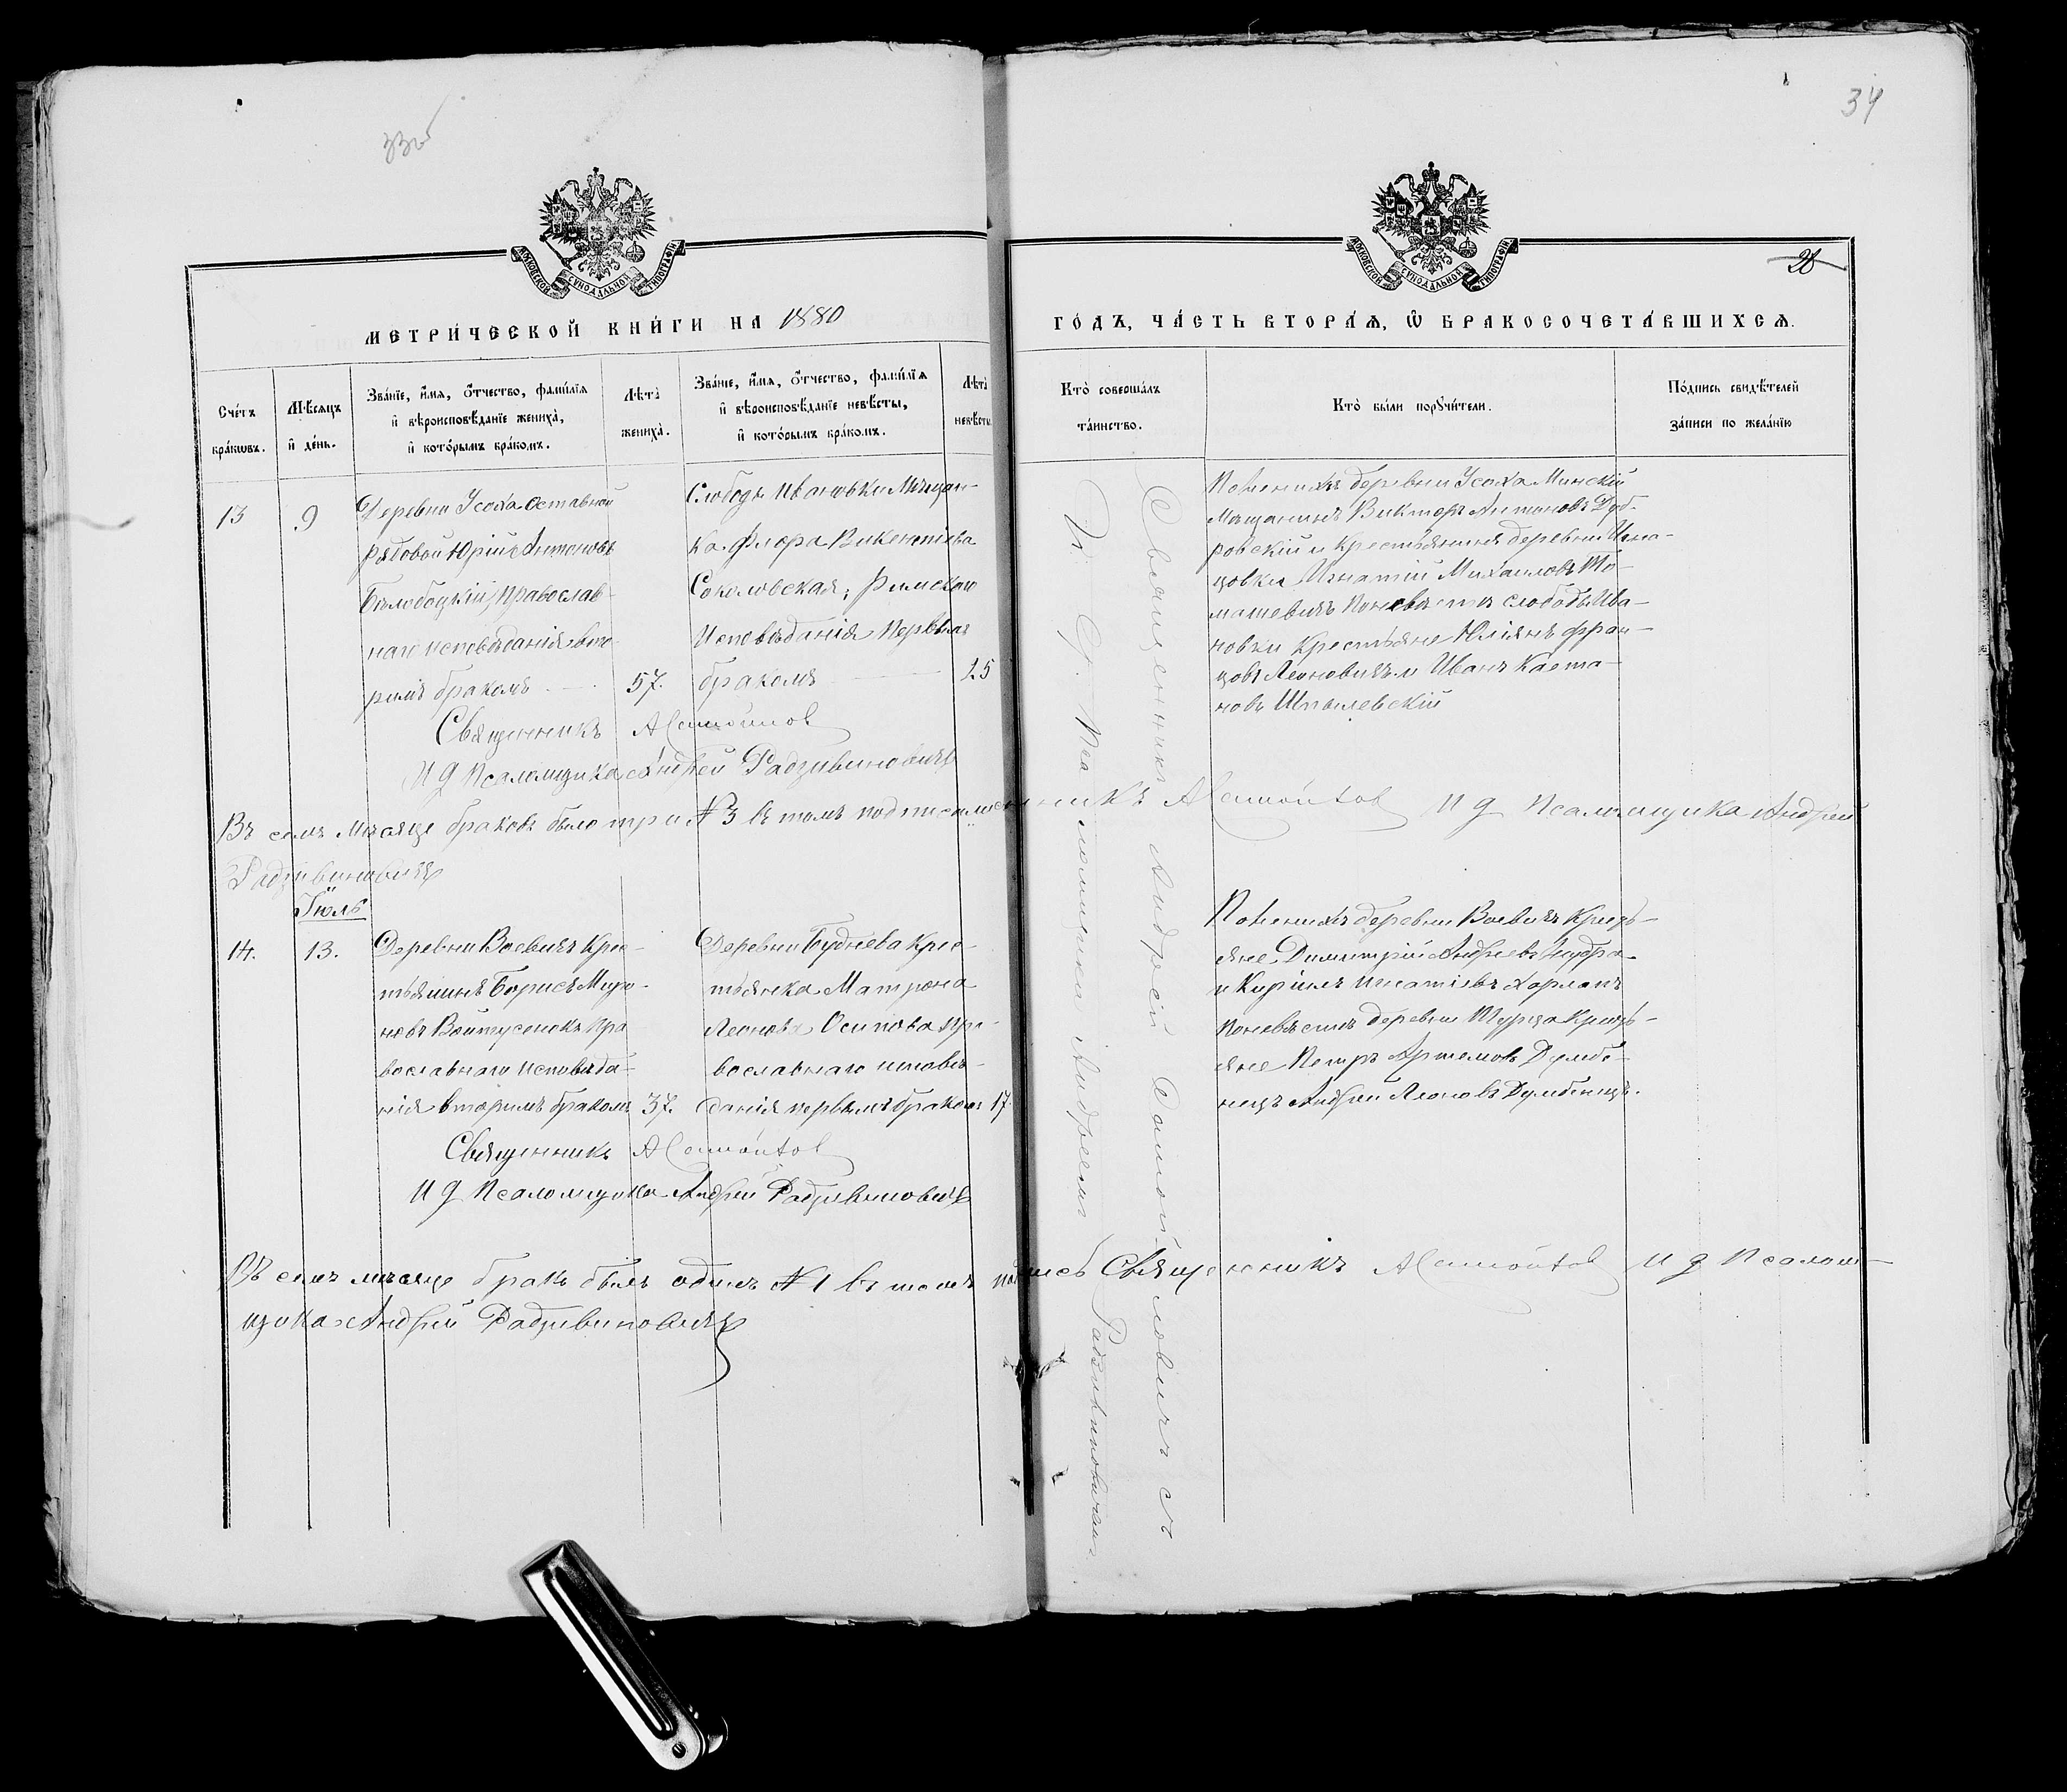 33об
34
МОСКОВСКОЙ СѴНОДАЛЬНОЙ ТИПОГРАФІИ
МОСКОВСКОЙ СѴНОДАЛЬНОЙ ТИПОГРАФІИ
28
МЕТРИ́ЧЕСКОЙ КНИ́ГИ НА 1880
ГО́ДЪ, ЧА́СТЬ ВТОРА́Я, Ѡ҆ БРАКОСОЧЕТА́ВШИХСЯ.
Сче́тъ
бра́кωвъ.
Мѣ́сяцъ
и҆ де́нь.
Зва́нїе, и҆́мя, ѻ҆́тчество, фами́лїя
и҆ вѣроисповѣ́данїе жениха̀,
и҆ кото́рымъ бра́комъ.
Лѣта̀
жениха̀.
Зва́нїе, и҆́мя, ѻ҆́тчество, фами́лїя
и҆ вѣроисповѣ́данїе невѣ́сты,
и҆ кото́рымъ бра́комъ.
Лѣта̀
невѣ́сты
Кто̀ соверша́лъ
та́инство.
Кто̀ бы́ли порꙋчи́тели.
По́дпись свидѣ́телей
за́писи по жела́нїю
13
9
Деревни Усоха Оставной
рядовой Юрій Антоновъ
Бѣлобоцкій, православ-
наго исповѣданія вто-
римъ бракомъ
57.
Слободы Ивановки Мѣщан-
ка Флора Викентіева
Соколовская, Римскаго
Исповѣданія первымъ
бракомъ
25
Священникъ Андрей Самойловичъ съ
И. д. Псаломщика Андреемъ Радзивиновичемъ
По женихѣ деревни Усоха Минскій
Мѣщанинъ Викторъ Антоновъ Дуб-
ровскій и Крестьянинъ деревни Игна-
цовки Игнатій Михаиловъ То-
машевичъ По невѣстѣ слободы Ива-
новки Крестьяне Юліянъ Фран-
цовъ Леоновичъ и Иванъ Каета-
новъ Шпилевскій
Священникъ АСамойлов
И д Псаломщика Андрей Радзивиновичъ
Въ семъ Мѣсяце браковъ было три № 3 въ томъ подписались Священникъ АСамойлов И д Псаломщика Андрей
Радзивиновичъ
Іюль
14.
13.
Деревни Воевичъ Крес-
тьянинъ Борисъ Миро-
новъ Войтусенокъ Пра
вославнаго исповѣда-
нія вторимъ бракомъ
37.
Деревни Буднева Крес-
тьянка Матрона
Леонова Осипова пра-
вославнаго исповѣ-
данія первымъ бракомъ
17.
По женихѣ деревни Воевичъ Крест-
яне Димитрій Андреевъ
и Кирилъ Игнатіевъ Харлапъ
по невѣстѣ деревни Турца Крест-
яне Петръ Артемовъ Думбе-
нецъ Андрей Леоновъ Думбенецъ.
Священникъ АСамойлов
И д Псаломщика Андрей Радзивиновичъ
Въ семъ мѣсяце бракъ былъ одинъ № 1 въ томъ подписъ Священникъ АСамойлов И д Псалом-
щика Андрей Радзивиновичъ